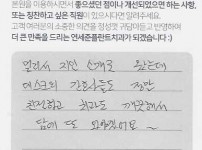 본원을 이용하시면서 좋으셨던 점이나 개선되었으면 하는 사항,
또는 칭찬하고 싶은 직원이 있으시다면 알려주세요.
고객 여러분의 소중한 의견을 정성껏 귀담아듣고 반영하여
더 큰 만족을 드리는 연세준플란트치과가 되겠습니다 :)
멀리서 지인 소개로 왔는데
데스크와 간호사들도 정말
친절하고 치과도 깨끗해서
담에 또 오려구요 ~